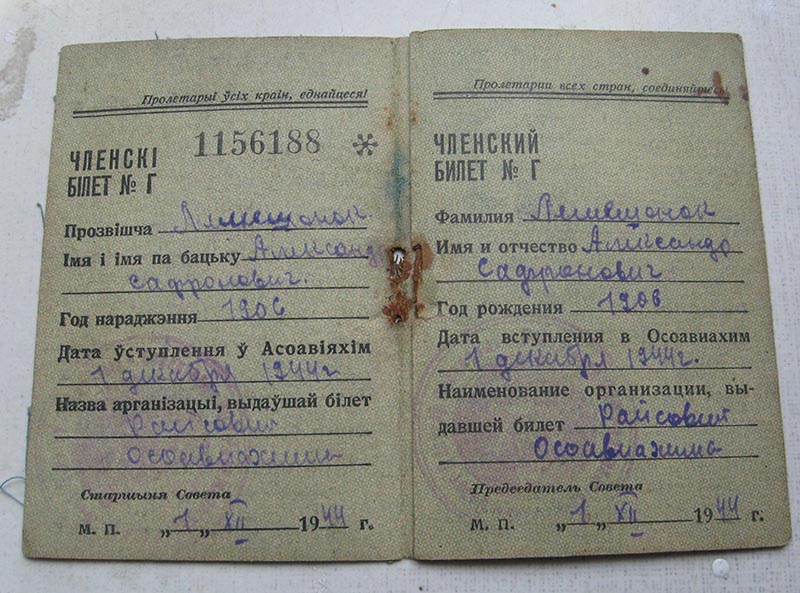 Пролетарыі ўсіх краін, еднайцеся!
ЧЛЕНСКІ 1156188
БІЛЕТ № Г
Прозвішча Лямешонок
Імя і імя па бацьку Александр
Сафронович.
Год нараджэння 1906
Дата ўступлення ў Асоавіяхім
1 декабря 1944 г.
Назва арганізацыі, выдаўшай білет
Райсовет
Осоавиахима
Старшыня Совета
М. П. „1„ XII 1944 г.
Пролетарии всех стран, соединяйтесь
ЧЛЕНСКИЙ
БИЛЕТ № Г
Фамилия Лямешонок
Имя и отчество Александр
Сафронович
Год рождения 1906
Дата вступления в Осоавиахим
1 декабря 1944 г.
Наименование организации, вы-
давшей билет Райсовет
Осоавиахима
Председатель Совета
М. П. „1„ XII 1944 г.